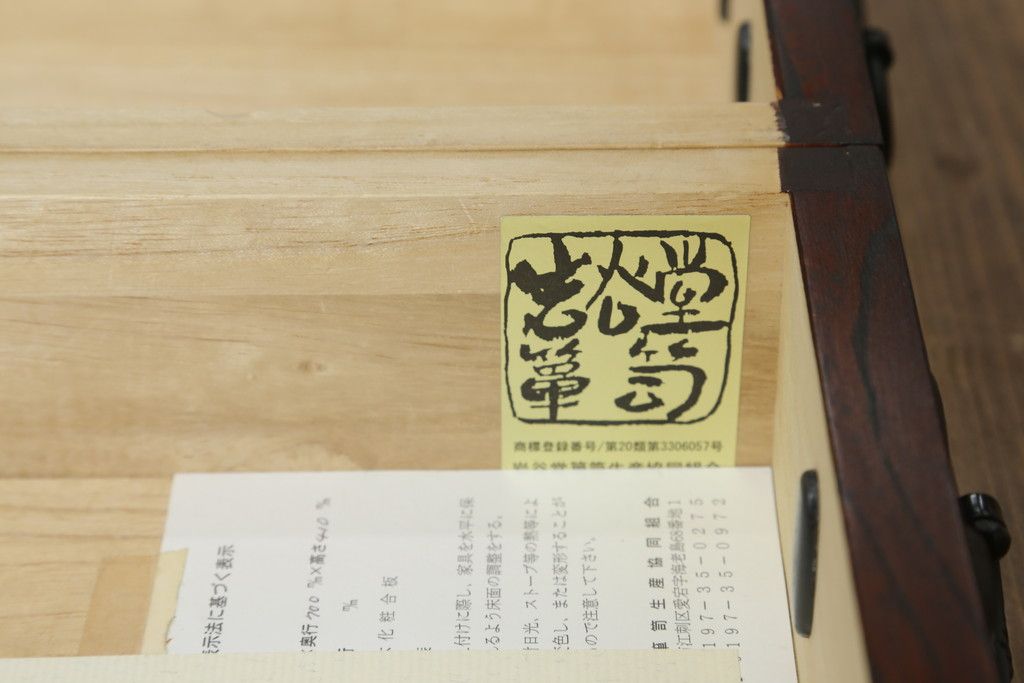 岩谷堂
箪笥
商標登録番号/第20類第3306057号
岩谷堂箪笥生産協同組合
示法に基づく表示
奥行700㎜×高さ440㎜
㎜
化粧合板
付けに際し、家具を水平に保
るよう床面の調整をする。
日光、ストーブ等の熱等によ
色し、または変形することが
ので注意して下さい。
箪笥生産協同組合
江刺区愛宕字海老島68番地1
197-35-0275
197-35-0972